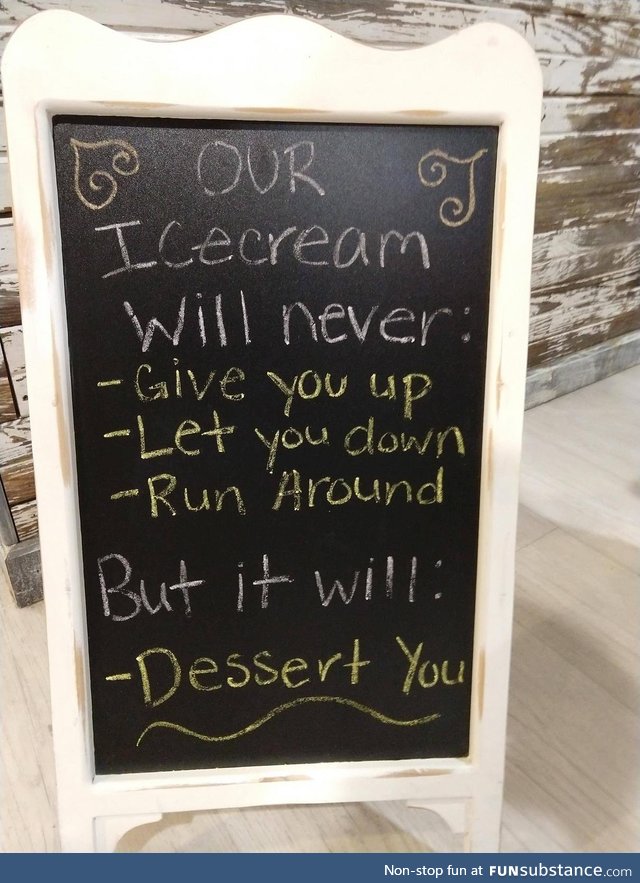 OUR
Icecream
Will never:
- Give you up
- Let you down
- Run Around
But it will:
- Dessert You
Non-stop fun at FUNsubstance.com